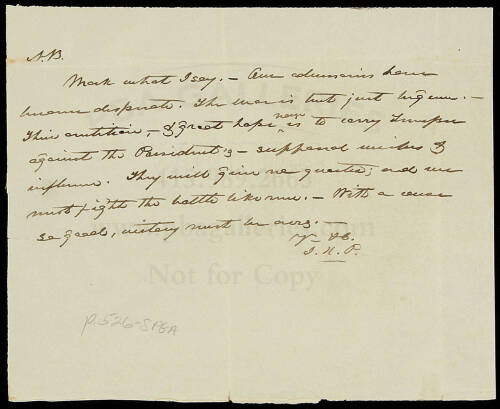 N.B.
Mark what I say. – Our adversaries have
become desperate. The war is but just begun. –
Their ambition – & great hope now is to carry Temper
against the President's – supposed wishes &
influence. They will give no quarter; and we
must fight the battle like men. – With a cause
so good, victory must be ours. –
Yr
J. H. P.
p.526-SPGA
Not for Copy